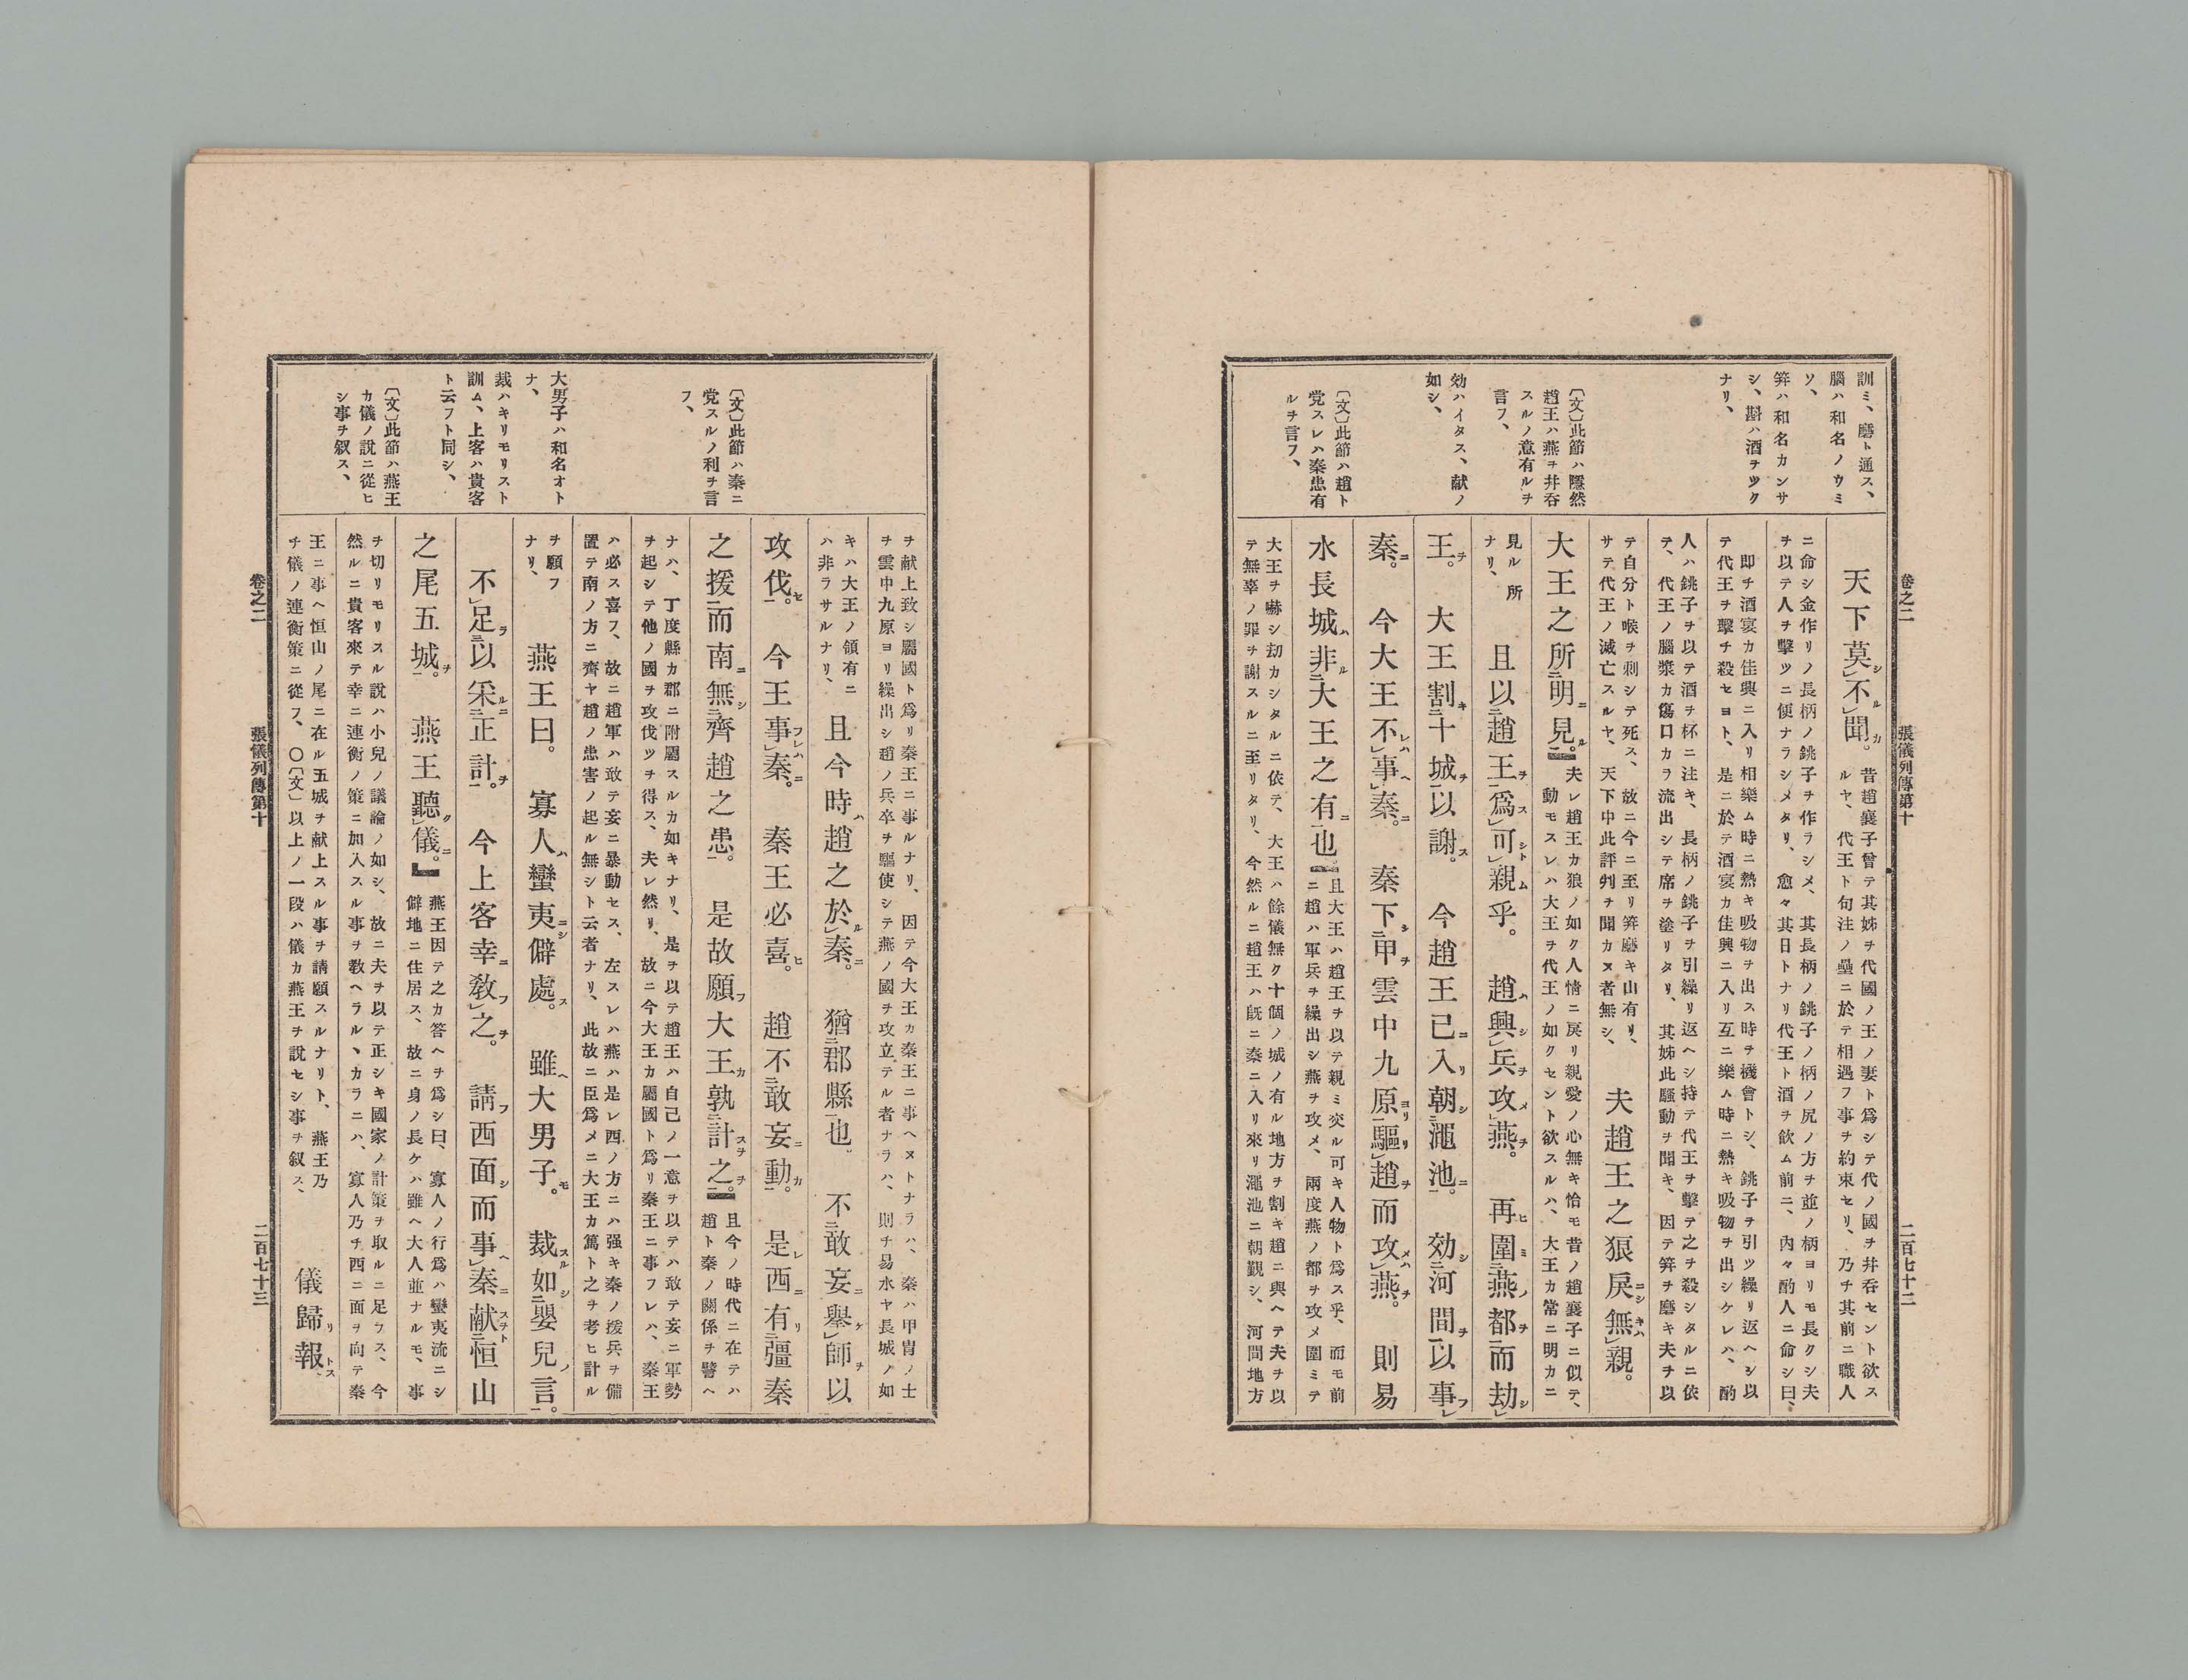 卷之二　張儀列傳第十　二百七十二
訓ミ、磨ト通ス、
腦ハ和名ノウミ
ソ、
笄ハ和名カンサ
シ、斟ハ酒ヲツク
ナリ、
〔文〕此節ハ隱然
趙王ハ燕ヲ幷呑
スルノ意有ルヲ
言フ、
効ハイタス、献ノ
如シ、
〔文〕此節ハ趙ト
党スレハ秦患有
ルヲ言フ、
天下莫シ不ル聞カ。
昔趙襄子曾テ其姊ヲ代國ノ王ノ妻ト爲シテ代ノ國ヲ幷呑セント欲ス
ルヤ、代王ト句注ノ壘ニ於テ相遇フ事ヲ約束セリ、乃チ其前ニ職人
ニ命シ金作リノ長柄ノ銚子ヲ作ラシメ、其長柄ノ銚子ノ柄ノ尻ノ方ヲ並ノ柄ヨリモ長クシ夫
ヲ以テ人ヲ擊ツニ便ナラシメタリ、愈々其日トナリ代王ト酒ヲ飲ム前ニ、內々酌人ニ命シ曰、
即チ酒宴カ佳興ニ入リ相樂ム時ニ熱キ吸物ヲ出ス時ヲ機會トシ、銚子ヲ引ツ繰リ返ヘシ以
テ代王ヲ擊チ殺セヨト、是ニ於テ酒宴カ佳興ニ入リ互ニ樂ム時ニ熱キ吸物ヲ出シケレハ、酌
人ハ銚子ヲ以テ酒ヲ杯ニ注キ、長柄ノ銚子ヲ引繰リ返ヘシ持テ代王ヲ擊テ之ヲ殺シタルニ依
テ、代王ノ腦漿カ傷口カラ流出シテ席ヲ塗リタリ、其姊此騷動ヲ聞キ、因テ笄ヲ磨キ夫ヲ以
テ自分ト喉ヲ刺シテ死ス、故ニ今ニ至リ笄磨キ山有リ、
サテ代王ノ滅亡スルヤ、天下中此評判ヲ聞カヌ者無シ、
夫趙王之狼戻ニシ無キハ親。
大王之所明ニ見ル。
夫レ趙王カ狼ノ如ク人情ニ戻リ親愛ノ心無キ恰モ昔ノ趙襄子ニ似テ、
動モスレハ大王ヲ代王ノ如クセント欲スルハ、大王カ常ニ明カニ
見ル所
ナリ、
且以趙王ヲ爲ス可シト親ム乎。　趙ハ興シ兵ヲ攻メ燕ヲ。　再ヒ圍ミ燕ノ都ヲ而劫シ
王ヲ。　大王割キ十城ヲ以謝ス。　今趙王已ニ入リ朝シ澠池ニ。　効シ河間ヲ以事フ
秦ニ。　今大王不レハ事ヘ秦ニ。　秦下シ甲ヲ雲中九原ヨリ驅リ趙ヲ而攻メハ燕ヲ。　則易
水長城ハ非ル大王之有ニ也。
且大王ハ趙王ヲ以テ親ミ交ル可キ人物ト爲ス乎、而モ前
ニ趙ハ軍兵ヲ繰出シ燕ヲ攻メ、兩度燕ノ都ヲ攻メ圍ミテ
大王ヲ嚇シ刧カシタルニ依テ、大王ハ餘儀無ク十個ノ城ノ有ル地方ヲ割キ趙ニ與ヘテ夫ヲ以
テ無辜ノ罪ヲ謝スルニ至リタリ、今然ルニ趙王ハ既ニ秦ニ入リ來リ澠池ニ朝覲シ、河間地方
〔文〕此節ハ秦ニ
党スルノ利ヲ言
フ、
大男子ハ和名オト
ナ、
裁ハキリモリスト
訓ム、上客ハ貴客
ト云フト同シ、
〔文〕此節ハ燕王
カ儀ノ說ニ從ヒ
シ事ヲ叙ス、
ヲ献上致シ屬國ト爲リ秦王ニ事ルナリ、因テ今大王カ秦王ニ事ヘヌトナラハ、秦ハ甲冑ノ士
ヲ雲中九原ヨリ繰出シ趙ノ兵卒ヲ驅使シテ燕ノ國ヲ攻立テル者ナラハ、則チ易水ヤ長城ノ如
キハ大王ノ領有ニ
ハ非ラサルナリ、
且今時ハ趙之於ル秦ニ。　猶郡縣也。　不敢妄ニ擧ケ師ヲ以
攻伐セ。　今王事フレハ秦ニ。　秦王必喜ヒ。　趙不敢妄ニ動カ。　是レ西ニ有リ彊秦
之援而南ニ無シ齊趙之患。　是故願フ大王カ孰計スヲ之ヲ。
且今ノ時代ニ在テハ
趙ト秦ノ關係ヲ譬ヘ
ナハ、丁度縣カ郡ニ附屬スルカ如キナリ、是ヲ以テ趙王ハ自己ノ一意ヲ以テハ敢テ妄ニ軍勢
ヲ起シテ他ノ國ヲ攻伐ツヲ得ス、夫レ然リ、故ニ今大王カ屬國ト爲リ秦王ニ事フレハ、秦王
ハ必ス喜フ、故ニ趙軍ハ敢テ妄ニ暴動セス、左スレハ燕ハ是レ西ノ方ニハ强キ秦ノ援兵ヲ備
置テ南ノ方ニ齊ヤ趙ノ患害ノ起ル無シト云者ナリ、此故ニ臣爲メニ大王カ篤ト之ヲ考ヒ計ル
ヲ願フ
ナリ、
燕王曰。　寡人ハ蠻夷ニシ僻處ス。　雖ヘ大男子モ。　裁スル如シ嬰兒ノ言。
不足ラ以采ルニ正計ヲ。　今上客幸ニ敎フ之ヲ。　請フ西面シ而事ヘ秦ニ献スヲト恒山
之尾五城ヲ。　燕王聽ク儀ニ。
燕王因テ之カ答ヘヲ爲シ曰、寡人ノ行爲ハ蠻夷流ニシ
僻地ニ住居ス、故ニ身ノ長ケハ雖ヘ大人並ナルモ、事
ヲ切リモリスル說ハ小兒ノ議論ノ如シ、故ニ夫ヲ以テ正シキ國家ノ計策ヲ取ルニ足ラス、今
然ルニ貴客來テ幸ニ連衡ノ策ニ加入スル事ヲ敎ヘラル、カラニハ、寡人乃チ西ニ面ヲ向テ秦
王ニ事ヘ恒山ノ尾ニ在ル五城ヲ献上スル事ヲ請願スルナリト、燕王乃
チ儀ノ連衡策ニ從フ、〇〔文〕以上ノ一段ハ儀カ燕王ヲ說セシ事ヲ叙ス、
儀歸リ報トス
卷之二　張儀列傳第十　二百七十三